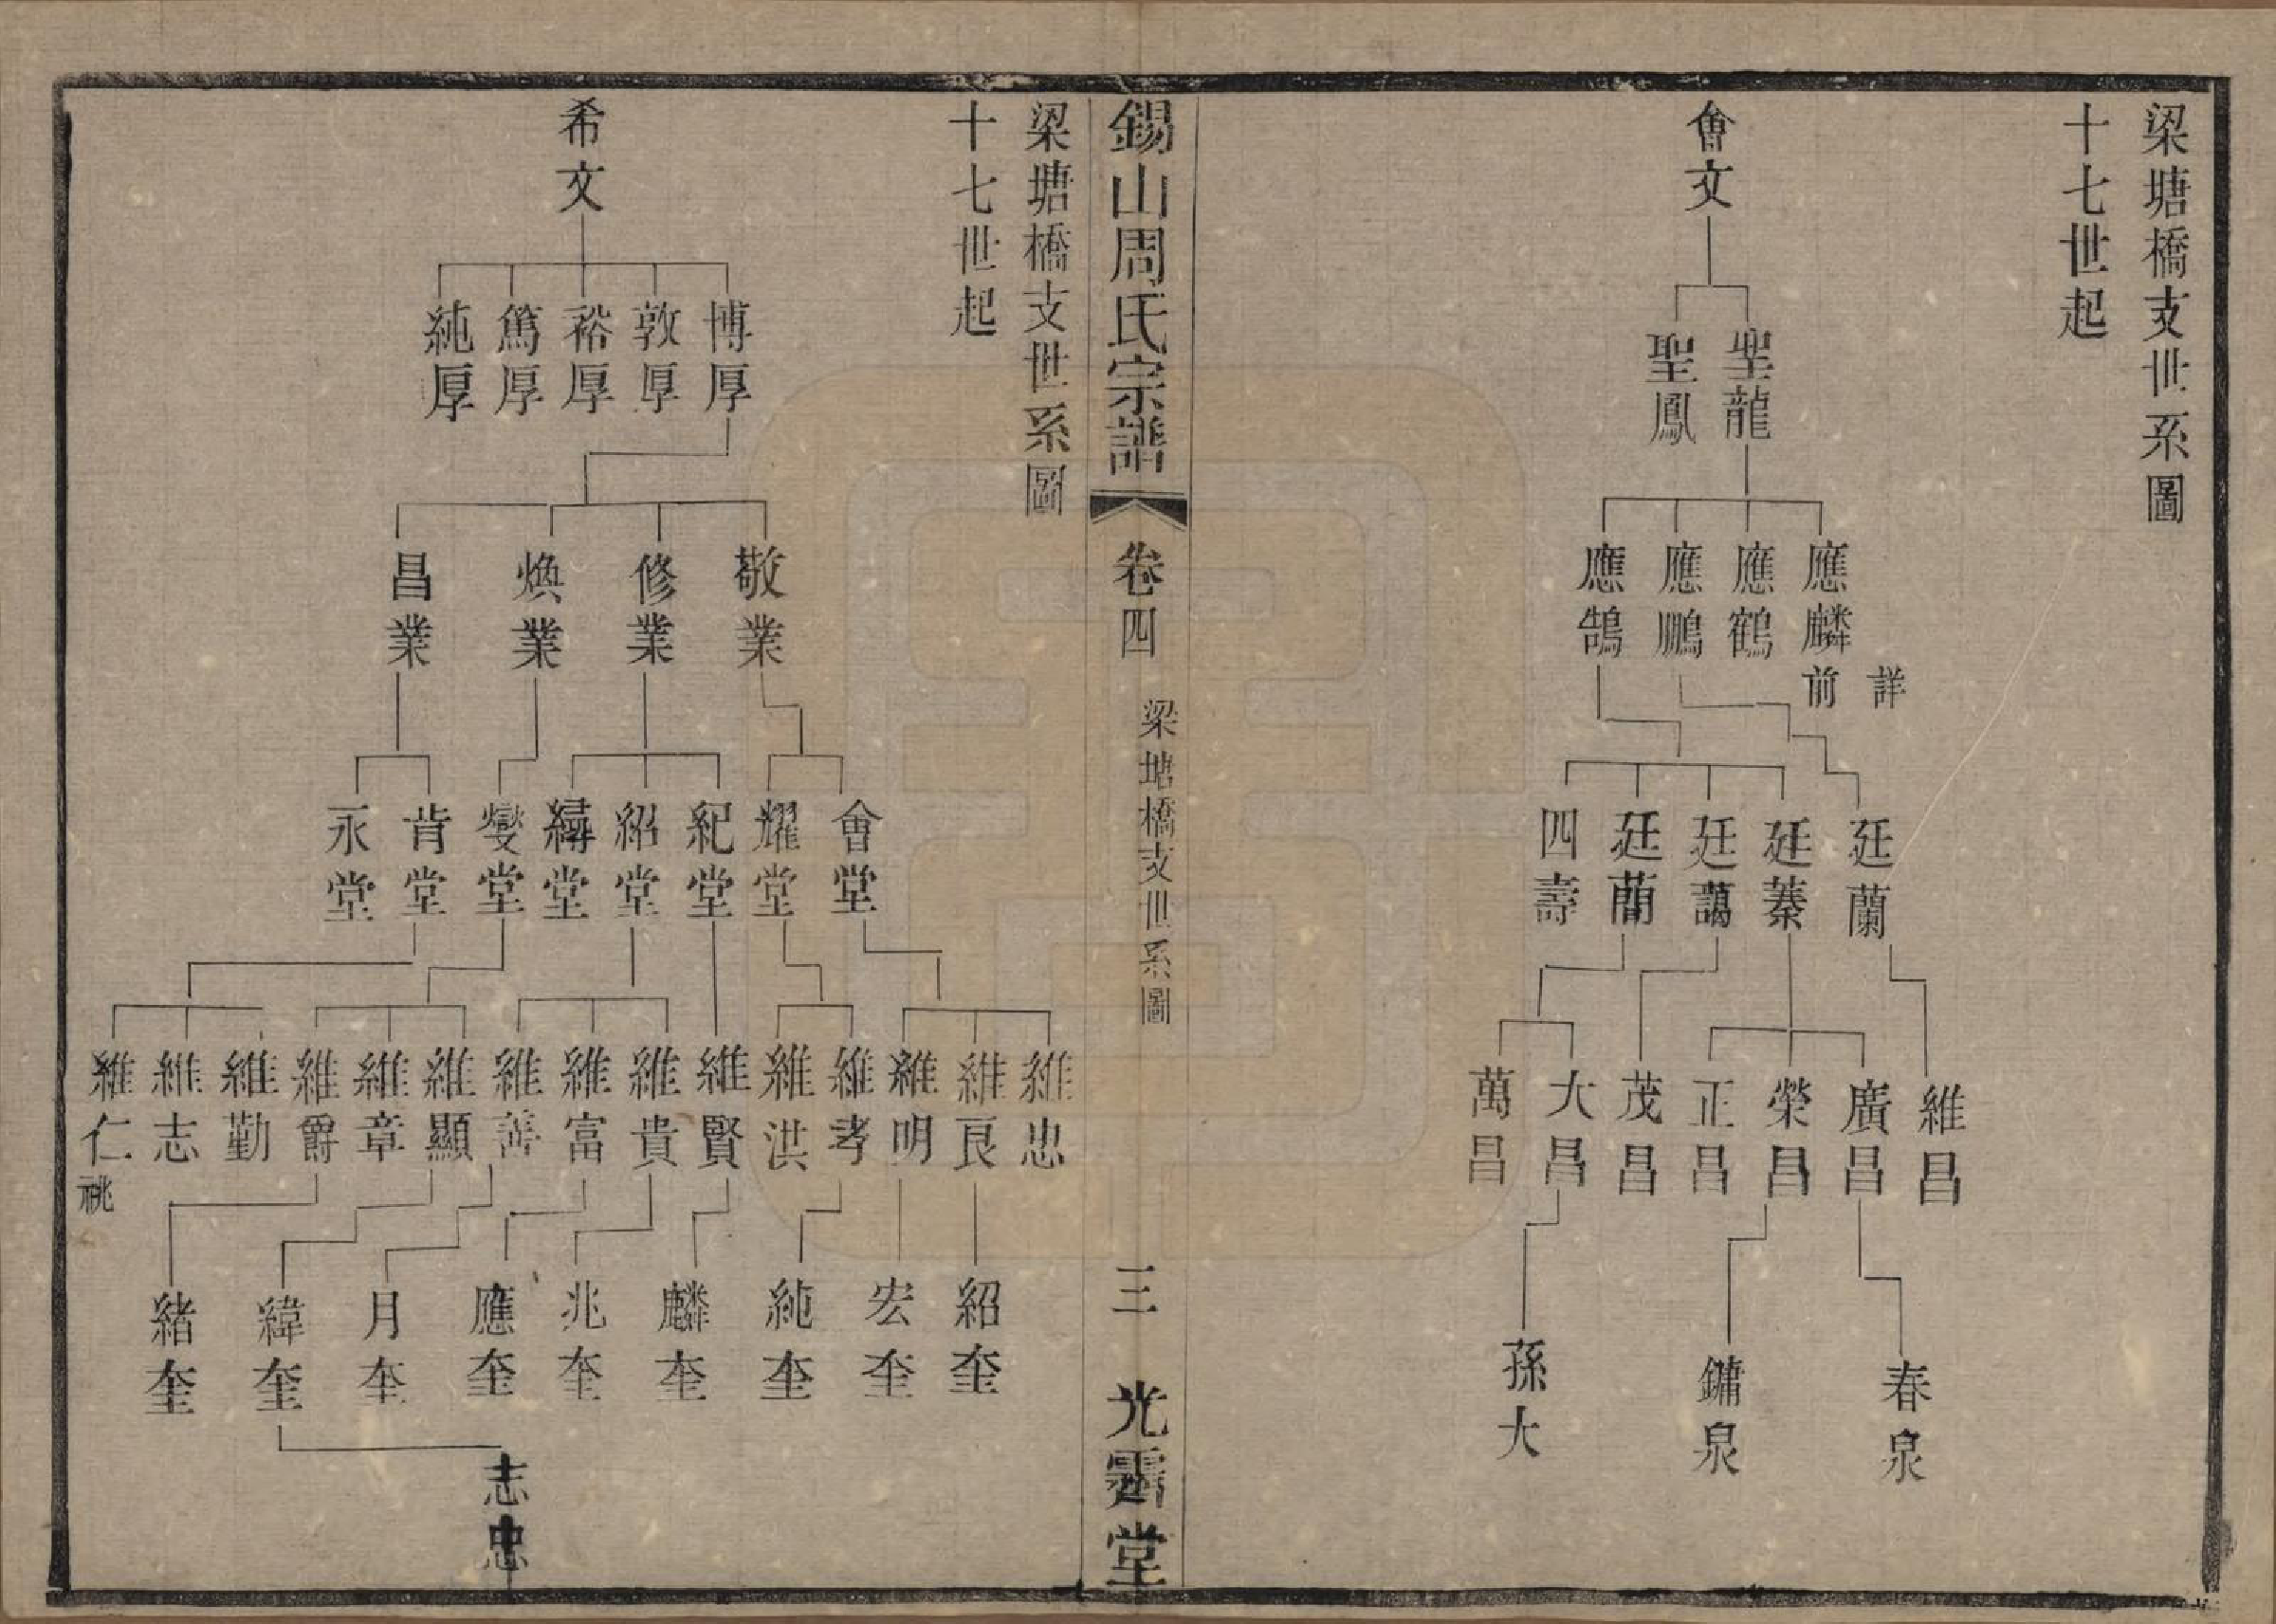 梁塘橋支世系圖
十七世起
會文
聖龍
聖鳳
應麟
詳前
應鶴
應鵬
應鵠
廷蘭
廷蓁
廷藹
廷蕳
四壽
維昌
廣昌
榮昌
正昌
茂昌
大昌
萬昌
春泉
鏞泉
孫大
錫山周氏宗譜
卷四
梁塘橋支世系圖
三
光霽堂
梁塘橋支世系圖
十七世起
希文
博厚
敦厚
裕厚
篤厚
純厚
敬業
修業
煥業
昌業
會堂
耀堂
紀堂
紹堂
堂
燮堂
肯堂
永堂
維忠
維良
維明
維孝
維洪
維賢
維貴
維富
維善
維顯
維章
維爵
維勤
維志
維仁
祧
紹奎
宏奎
純奎
麟奎
兆奎
應奎
月奎
緯奎
緒奎
志忠